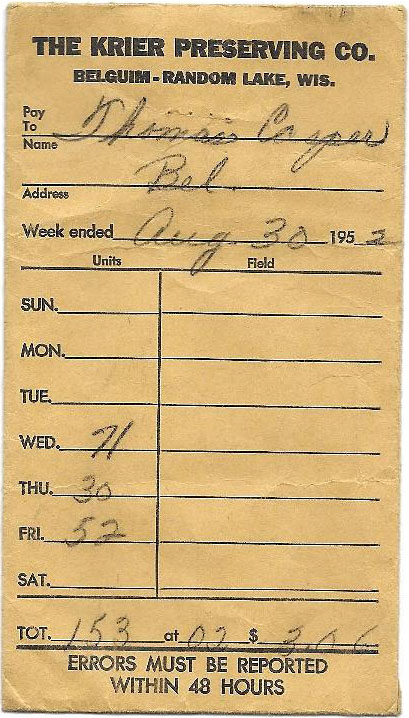 THE KRIER PRESERVING CO.
BELGUIM-RANDOM LAKE, WIS.
Pay To Name Thomas Casper
Address Bel.
Week ended Aug 30 1952
Units Field
SUN.
MON.
TUE.
WED. 71
THU. 30
FRI. 52
SAT.
TOT. 153 at 02 $ 3.06
ERRORS MUST BE REPORTED
WITHIN 48 HOURS